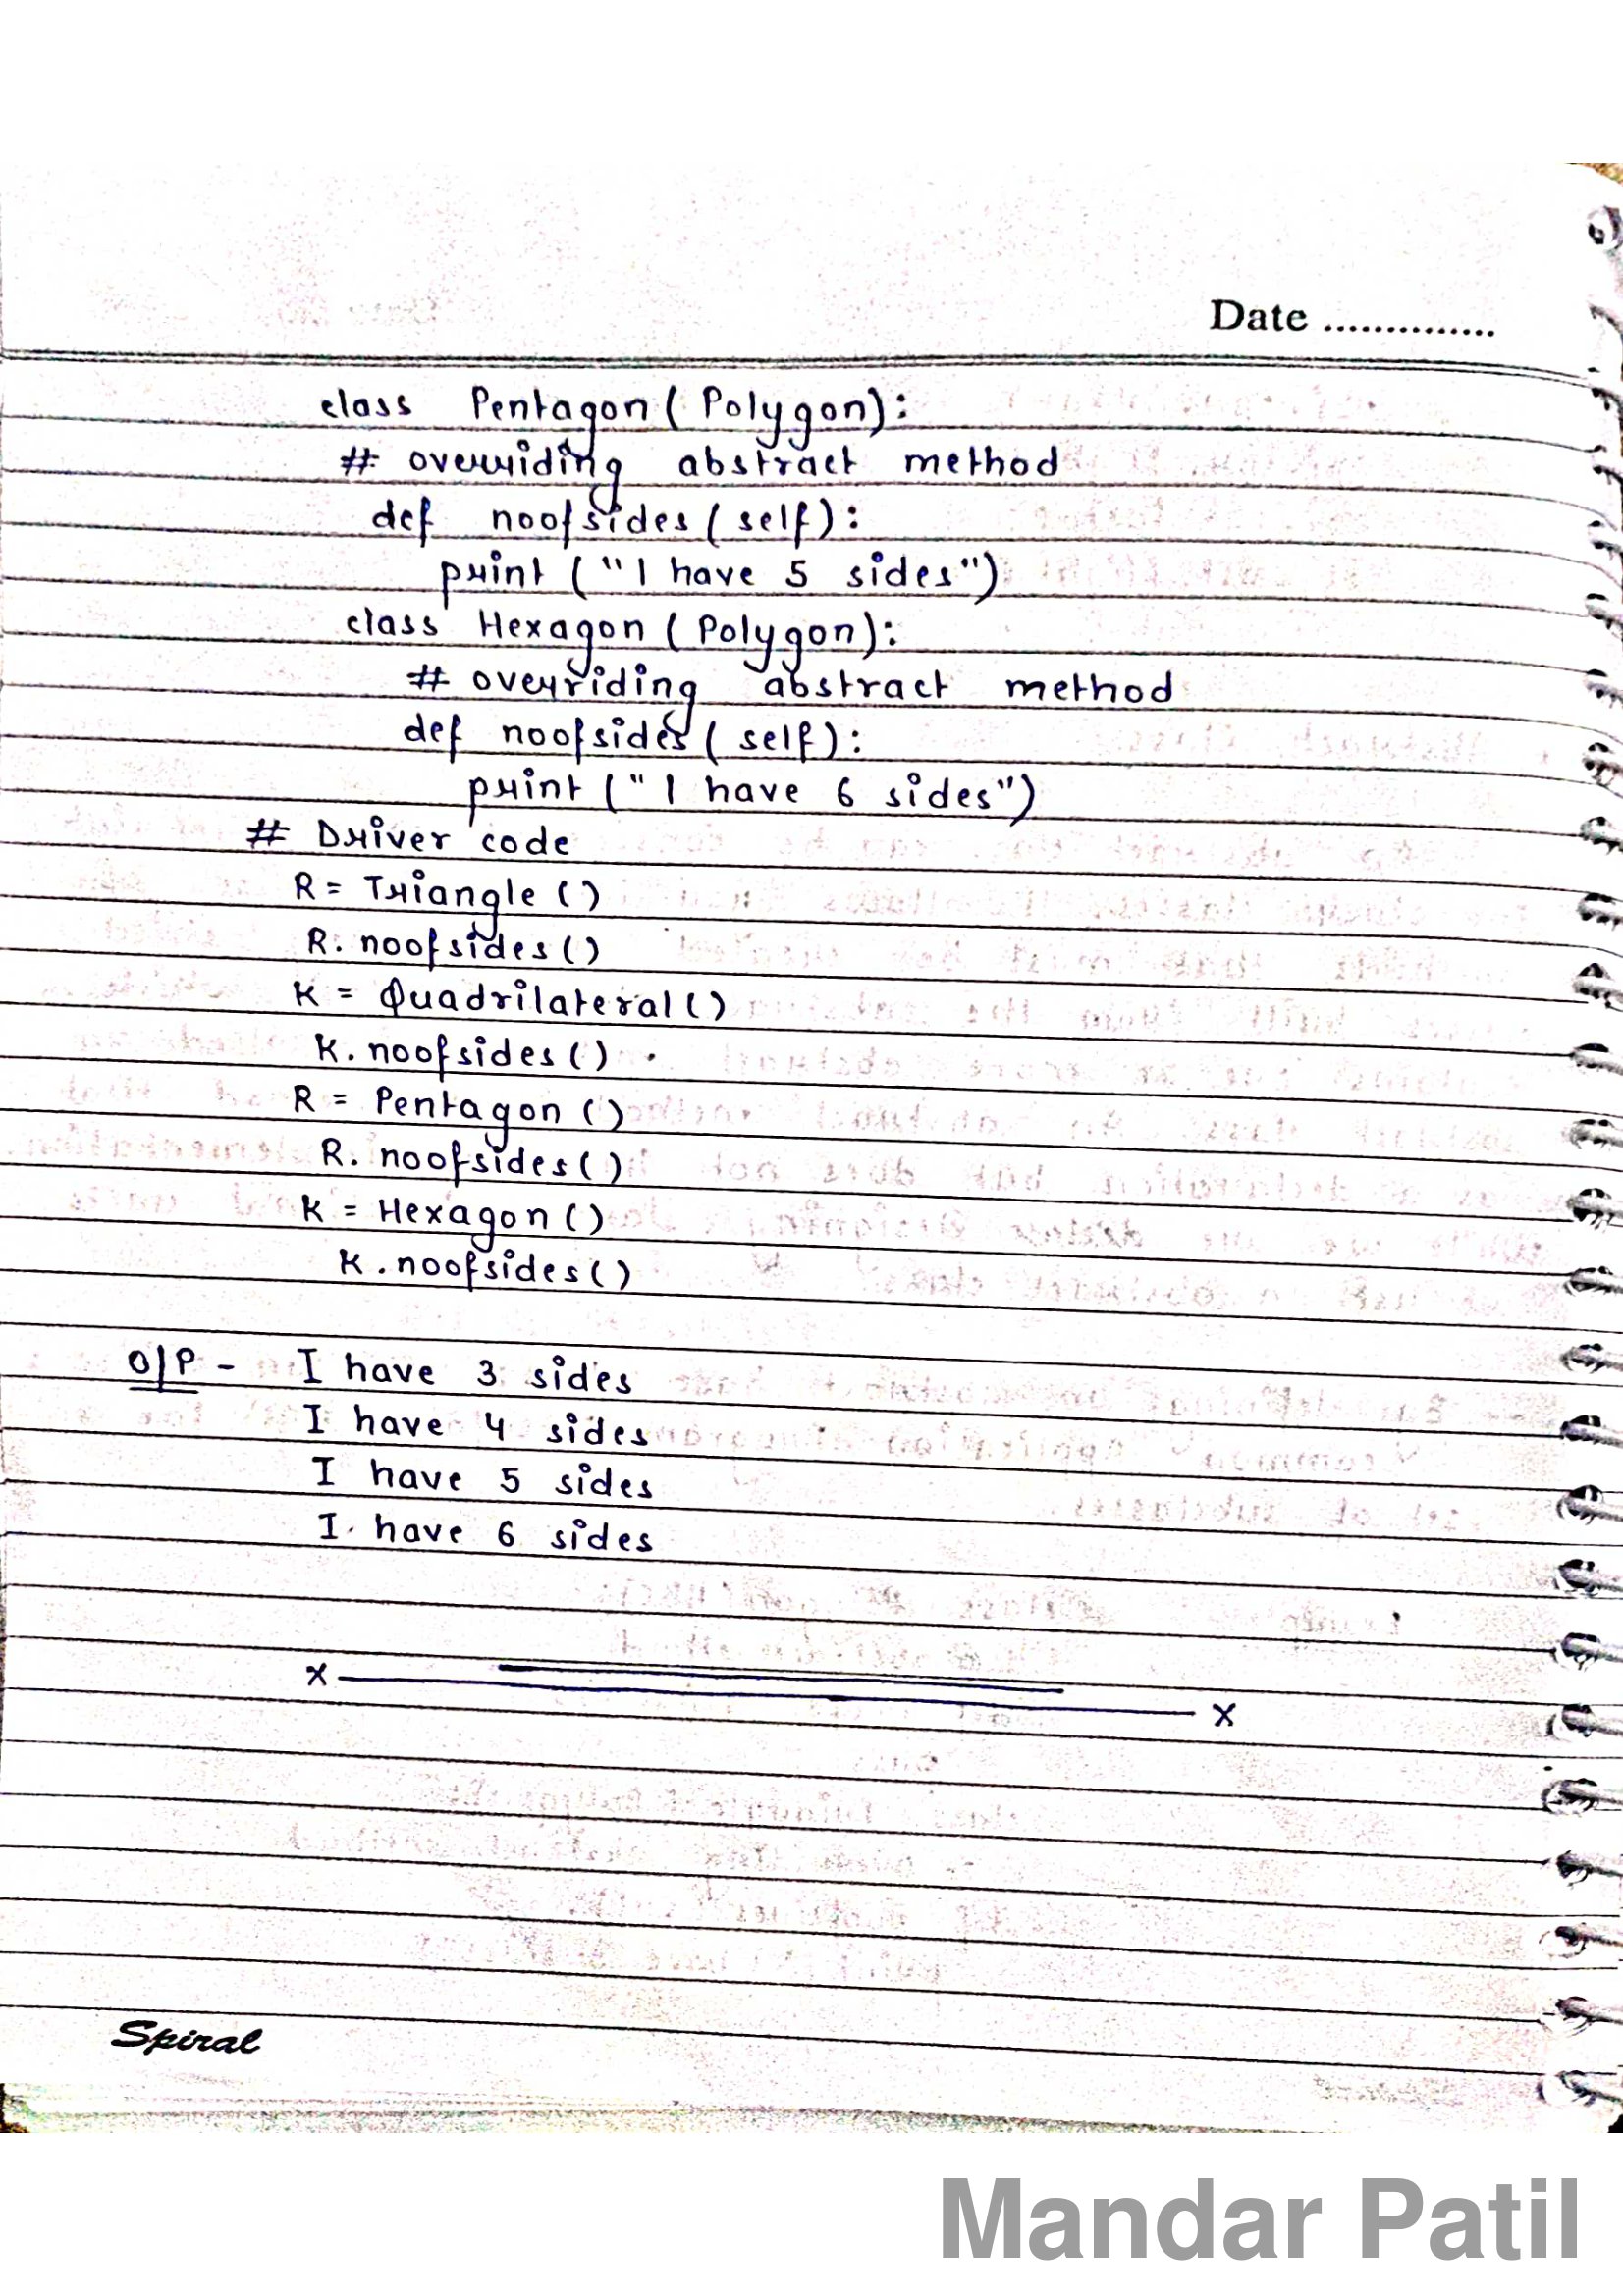 Date ..............
class Pentagon ( Polygon):
# overriding abstract method
def noofsides ( self ):
print ( "I have 5 sides")
class Hexagon ( Polygon):
# overriding abstract method
def noofsides ( self ):
print ( " I have 6 sides")
# Driver code
R = Triangle ( )
R. noofsides ( )
K = Quadrilateral ( )
K. noofsides ( ) .
R = Pentagon ( )
R. noofsides ( )
K = Hexagon ( )
K . noofsides ( )
O|P - I have 3 sides
I have 4 sides
I have 5 sides
I. have 6 sides
x x
Spiral
Mandar Patil